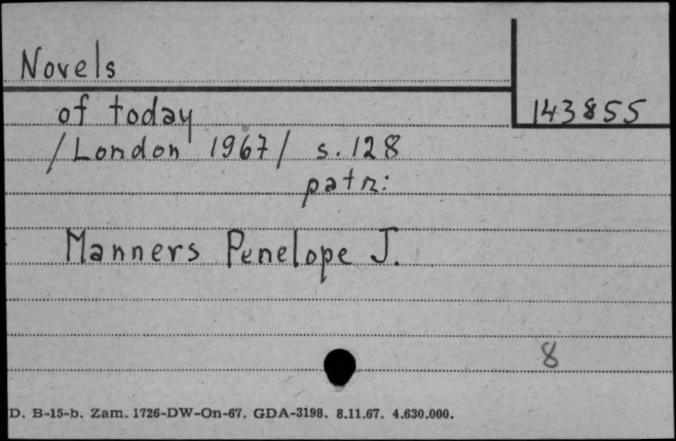 Novels
143855
of today
/London 1967/ s. 128
patrz:
Manners Penelope J.
8
D. B-15-b. Zam. 1726-DW-On-67. GDA-3198. 8.11.67. 4.630.000.